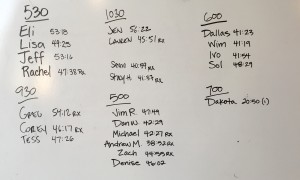 530
Eli 53:18
Lisa 47:25
Jeff 53:16
Rachel 47:38 RX
930
Greg 54:12 RX
Corey 46:17 RX
Tess 47:26
1030
Jen 56:22
Lauren 45:51 RX
Sean 40:57 RX
Shay H. 41:57 RX
500
Jim R. 47:49
Dan W. 42:29
Michael 42:27 RX
Andrew M. 38:52 RX
Zach 44:55 RX
Denise 46:02
600
Dallas 41:23
Wim 41:19
Ivo 41:54
Sol 48:29
700
Dakota 20:50